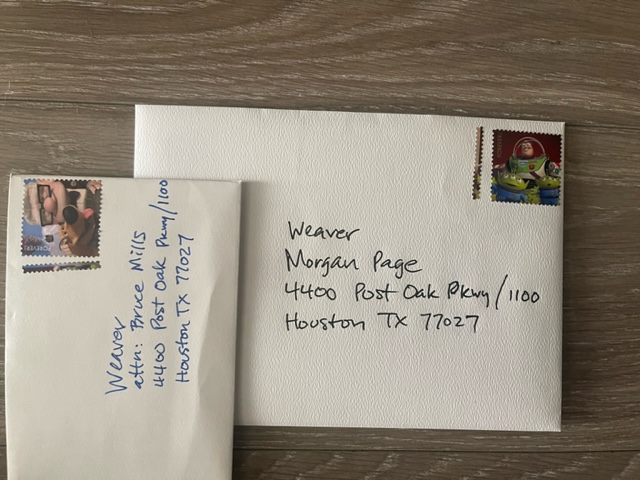 Weaver
attn: Bruce Mills
4400 Post Oak Pkwy/1100
Houston TX 77027
Weaver
Morgan Page
4400 Post Oak Pkwy/1100
Houston TX 77027
FOREVER